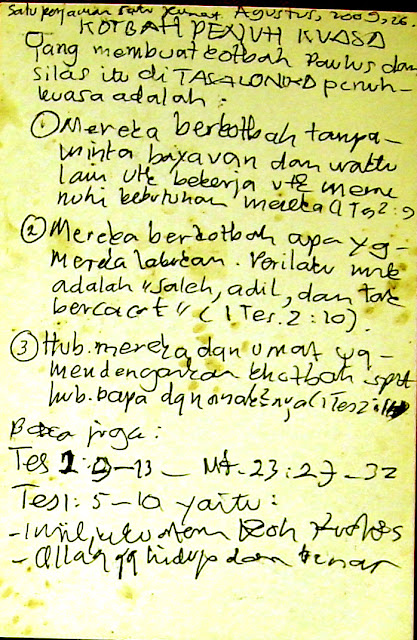 Satu perjanian satu Jumat Agustus, 2009, 26.
KOTBAH PENUH KUASA
Yang membuat kotbah Paulus dan
silas itu di TASALONIKA penuh-
kuasa adalah:
① Mereka berkotbah tanpa-
minta bayaran dan waktu
lain utk bekerja utk meme
nuhi kebutuhan mereka (1 Tes 2:9
② Mereka berkotbah apa yg-
mereka lakukan. Perilaku mrk
adalah "saleh, adil, dan tak
bercacat" (1 Tes. 2:10).
③ Hub. mereka dgn umat yg-
mendengarkan khotbah sprt
hub. bapa dgn anak²nya (1 Tes 2:
Baca juga:
Tes 1: 9-13 - Mt. 23:27-32
Tes 1: 5-10 yaitu:
- Injil, Roh Kudus
- Allah yg hidup dan benar